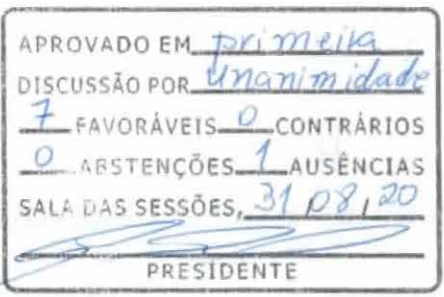 APROVADO EM primeira
DISCUSSÃO POR unanimidade
7 FAVORÁVEIS 0 CONTRÁRIOS
0 ABSTENÇÕES 1 AUSÊNCIAS
SALA DAS SESSÕES, 31 / 08 / 20
PRESIDENTE